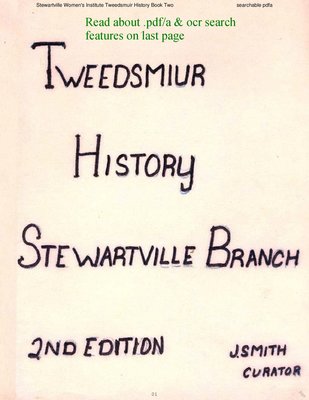 Stewartville Women's Institute Tweedsmuir History Book Two searchable pdfa
Read about .pdf/a & ocr search
features on last page
TWEEDSMIUR
HISTORY
STEWARTVILLE BRANCH
2ND EDITION J.SMITH
CURATOR
01